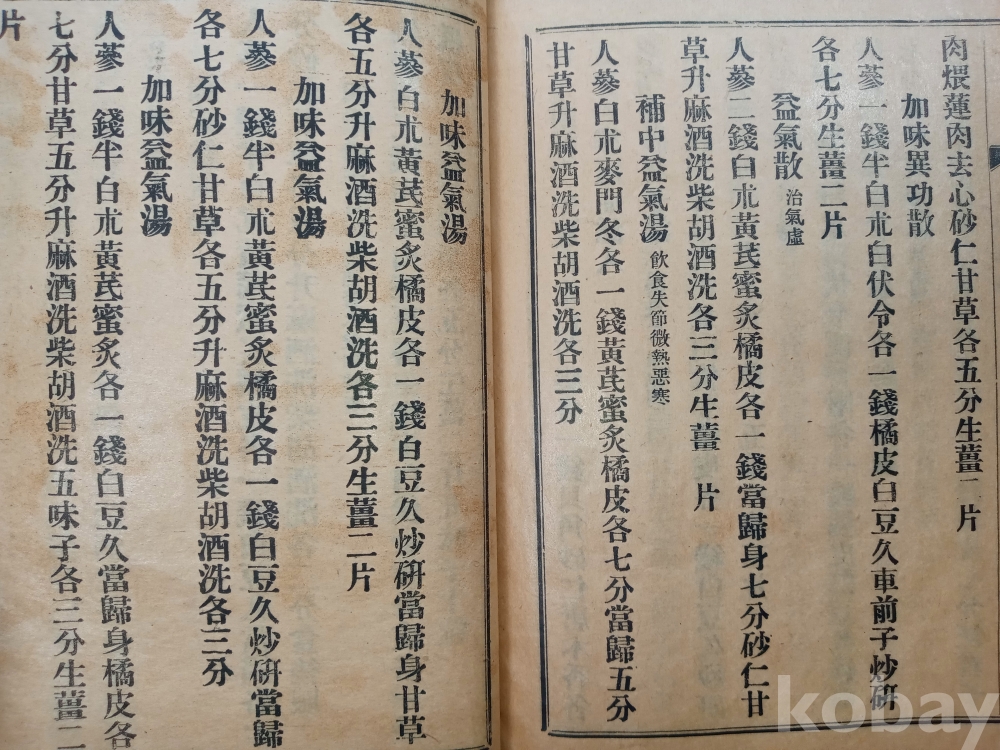 肉煨蓮肉去心砂仁甘草各五分生薑二片
加味異功散
人蔘一錢半白朮白伏令各一錢橘皮白豆久車前子炒硏
各七分生薑二片
益氣散 治氣虛
人蔘二錢白朮黃芪蜜炙橘皮各一錢當歸身七分砂仁甘
草升麻酒洗柴胡酒洗各三分生薑 片
補中益氣湯 飮食失節微熱惡寒
人蔘白朮麥門冬各一錢黃芪蜜炙橘皮各七分當歸五分
甘草升麻酒洗柴胡酒洗各三分
加味益氣湯
人蔘白朮黃芪蜜炙橘皮各一錢白豆久炒硏當歸身甘草
各五分升麻酒洗柴胡酒洗各三分生薑二片
加味益氣湯
人蔘一錢半白朮黃芪蜜炙橘皮各一錢白豆久炒硏當歸
各七分砂仁甘草各五分升麻酒洗柴胡酒洗各三分
加味益氣湯
人蔘一錢半白朮黃芪蜜炙各一錢白豆久當歸身橘皮各
七分甘草五分升麻酒洗柴胡酒洗五味子各三分生薑二
片
kobay